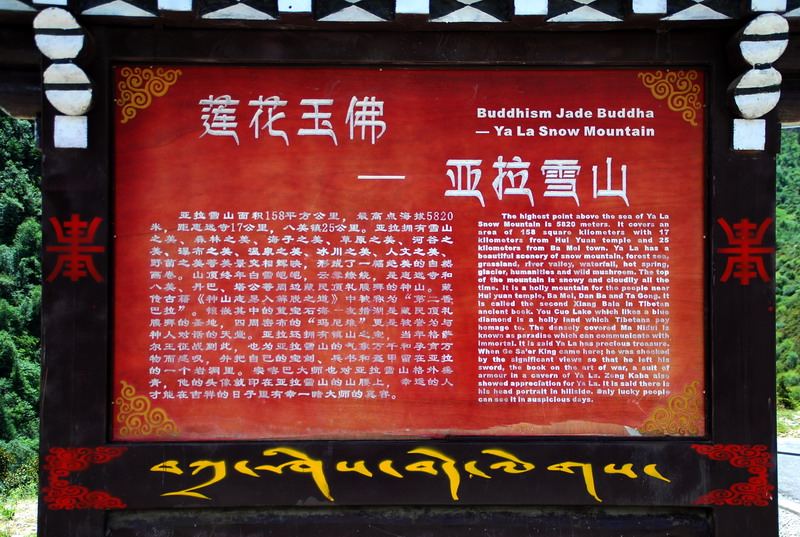 莲花玉佛
— 亚拉雪山
Buddhism Jade Buddha
— Ya La Snow Mountain
亚拉雪山面积158平方公里，最高点海拔5820
米，距惠远寺17公里，八美镇25公里。亚拉拥有雪山
之美、森林之美、海子之美、草原之美、河谷之
美、瀑布之美、温泉之美、冰川之美、人文之美、
野菌之美等美景交相辉映，形成了一幅绝美的自然
画卷。山顶终年白雪皑皑，云雾缭绕，是惠远寺和
八美、丹巴、塔公等周边藏民顶礼膜拜的神山。藏
传古籍《神山志易入解脱之道》中被称为“第二香
巴拉”。镶嵌其中的蓝宝石海--友措湖是藏民顶礼
膜拜的圣地，四周密布的“玛尼堆”更是被誉为与
神人对话的天堂。亚拉还拥有镇山之宝，当年格萨
尔王征战到此，也为亚拉雪山的气象万千和孕育万
物而感叹，并把自己的宝剑、兵书和盔甲留在亚拉
的一个岩洞里。宗喀巴大师也对亚拉雪山格外垂
青，他的头像就印在亚拉雪山的山腰上，幸运的人
才能在吉祥的日子里有幸一睹大师的真容。
The highest point above the sea of Ya La
Snow Mountain is 5820 meters. It covers an
area of 158 square kilometers with 17
kilometers from Hui Yuan temple and 25
kilometers from Ba Mei town. Ya La has a
beautiful scenery of snow mountain, forest sea,
grassland, river valley, waterfall, hot spring,
glacier, humanities and wild mushroom. The top
of the mountain is snowy and cloudily all the
time. It is a holly mountain for the people near
Hui yuan temple, Ba Mei, Dan Ba and Ta Gong. It
is called the second Xiang Bala in Tibetan
ancient book. You Cuo Lake which likes a blue
diamond is a holly land which Tibetans pay
homage to. The densely covered Ma Nidui is
known as paradise which can communicate with
immortal. It is said Ya La has precious treasure.
When Ge Sa'er King came here; he was shocked
by the significant views so that he left his
sword, the book on the art of war, a suit of
armour in a cavern of Ya La. Zong Kaba also
showed appreciation for Ya La. It is said there is
his head portrait in hillside. Only lucky people
can see it in auspicious days.